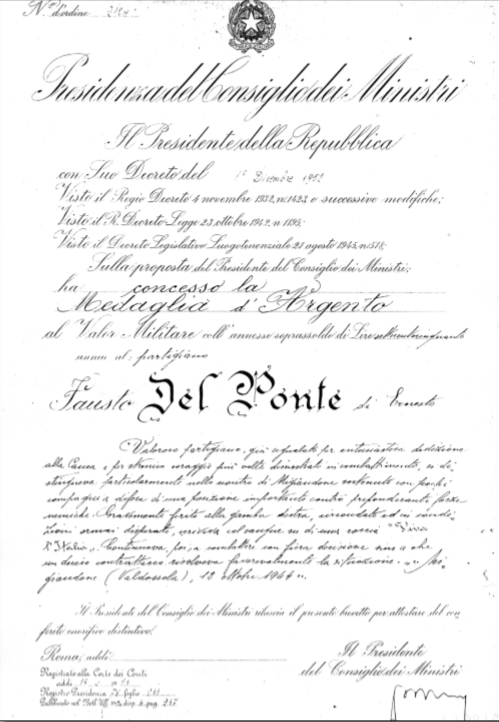 N° d'ordine
Presidenza del Consiglio dei Ministri
Il Presidente della Repubblica
con Suo Decreto del 1° Dicembre 1952
Visto il Regio Decreto 4 novembre 1932, n. 1423 e successive modifiche;
Visto il R. Decreto-Legge 23 ottobre 1942, n. 1195;
Visto il Decreto Legislativo Luogotenenziale 21 agosto 1945, n. 518;
Sulla proposta del Presidente del Consiglio dei Ministri;
ha concesso la
Medaglia d'Argento
al Valor Militare coll'annesso soprassoldo di Lire
annue al: partigiano
Fausto Del Ponte di Ernesto
Valoroso partigiano, già segnalato per entusiastica dedizione
alla Causa e per strenuo coraggio più volte dimostrati in combattimento, si di-
stingueva particolarmente nella contro pochi
compagni a difesa di una posizione importante contro preponderanti forze
nemiche. Gravemente ferito alla gamba destra, circondato ed in condi-
zioni ormai disperate, scriveva col sangue su di una roccia "Viva
l'Italia". Continuava, poi, a combattere con fiera decisione sino a che
un deciso contrattacco risolveva favorevolmente la situazione. Mi-
giandone (Valdossola), 12 ottobre 1944".
Il Presidente del Consiglio dei Ministri rilascia il presente brevetto per attestare del con-
ferito onorifico distintivo.
Roma, addì
Il Presidente
del Consiglio dei Ministri
Registrato alla Corte dei Conti
addì
Registro Presidenza foglio
Pubblicato nel Boll. Uff. disp. pag. 257